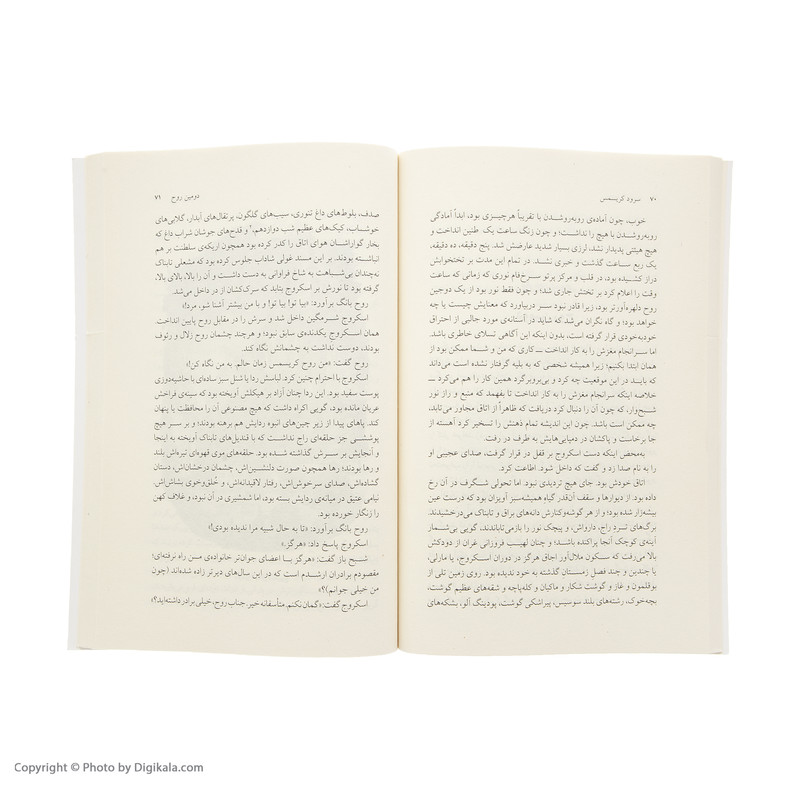 ۷۰ سرود کریسمس
خوب، چون آماده‌ی روبه‌روشدن با تقریباً هرچیزی بود، ابداً آمادگی
روبه‌روشدن با هیچ را نداشت؛ و چون زنگ ساعت یک طنین انداخت و
هیچ هیئتی پدیدار نشد، لرزی بسیار شدید عارضش شد. پنج دقیقه، ده دقیقه،
یک ربع ساعت گذشت و خبری نشد. در تمام این مدت بر تختخوابش
دراز کشیده بود، در قلب و مرکز پرتو سرخ‌فام نوری که زمانی که ساعت
وقت را اعلام کرد بر تختش جاری شد؛ و چون فقط نور بود از یک دوجین
روح دلهره‌آورتر بود، زیرا قادر نبود سر دربیاورد که معنایش چیست یا چه
خواهد بود؛ و گاه نگران می‌شد که شاید در آستانه‌ی مورد جالبی از احتراق
خودبه‌خودی قرار گرفته، بدون اینکه از این آگاهی تسلای خاطری باشد.
اما سرانجام مغزش را به کار انداخت ــ کاری که من و شما ممکن بود از
همان ابتدا بکنیم؛ زیرا همیشه شخصی که به بلیه گرفتار نشده است می‌داند
که باید در این موقعیت چه کرد و بی‌بروبرگرد همین کار را هم می‌کرد ــ
خلاصه اینکه سرانجام مغزش را به کار انداخت تا بفهمد که منبع و راز نور
شبح‌وار، که چون آن را دنبال کرد دریافت که ظاهراً از اتاق مجاور می‌تابد،
چه ممکن است باشد. چون این اندیشه تمام ذهنش را تسخیر کرد آهسته از
جا برخاست و پاکشان در دمپایی‌هایش به طرف در رفت.
به‌محض اینکه دست اسکروج بر قفل در قرار گرفت، صدای عجیبی او
را به نام صدا زد و گفت که داخل شود. اطاعت کرد.
اتاق خودش بود. جای هیچ تردیدی نبود. اما تحولی شگرف در آن رخ
داده بود. از دیوارها و سقف آن‌قدر گیاه همیشه‌سبز آویزان بود که درست عین
بیشه‌زار شده بود؛ و از هر گوشه‌وکنارش دانه‌های براق و تابناک می‌درخشیدند.
برگ‌های تُرد راج، دارواش، و پیچک نور را بازمی‌تاباندند، گویی بی‌شمار
آینه‌ی کوچک آنجا پراکنده باشد؛ و چنان لهیب فروزانی غران از دودکش
بالا می‌رفت که سکون ملال‌آور اجاق هرگز در دوران اسکروج، یا مارلی،
یا چندین و چند فصل زمستان گذشته به خود ندیده بود. روی زمین تلی از
بوقلمون و غاز و گوشت شکار و ماکیان و کله‌پاچه و شقه‌های عظیم گوشت،
بچه‌خوک، رشته‌های بلند سوسیس، پیراشکی گوشت، پودینگ آلو، بشکه‌های
دومین روح ۷۱
صدف، بلوط‌های داغ تنوری، سیب‌های گلگون، پرتقال‌های آبدار، گلابی‌های
خوشاب، کیک‌های عظیم شب دوازدهم،۱ و قدح‌های جوشان شراب داغ که
بخار گواراشان هوای اتاق را کدر کرده بود همچون اریکه‌ی سلطنت بر هم
انباشته بودند. بر این مسند غولی شاداب جلوس کرده بود که مشعلی تابناک
نه‌چندان بی‌شباهت به شاخ فراوانی به دست داشت و آن را بالا، بالای بالا،
گرفته بود تا نورش بر اسکروج بتابد که سرک‌کشان از در داخل می‌شد.
روح بانگ برآورد: «بیا تو! بیا تو! و با من بیشتر آشنا شو، مرد!»
اسکروج شرمگین داخل شد و سرش را در مقابل روح پایین انداخت.
همان اسکروج یک‌دنده‌ی سابق نبود؛ و هرچند چشمان روح زلال و رئوف
بودند، دوست نداشت به چشمانش نگاه کند.
روح گفت: «من روح کریسمس زمان حالم. به من نگاه کن!»
اسکروج با احترام چنین کرد. لباسش ردا یا شنل سبز ساده‌ای با حاشیه‌دوزی
پوست سفید بود. این ردا چنان آزاد بر هیکلش آویخته بود که سینه‌ی فراخش
عریان مانده بود، گویی اکراه داشت که هیچ مصنوعی آن را محافظت یا پنهان
کند. پاهای پیدا از زیر چین‌های انبوه ردایش هم برهنه بودند؛ و بر سر هیچ
پوششی جز حلقه‌ای راج نداشت که با قندیل‌های تابناک آویخته به اینجا
و آنجایش بر سرش گذاشته شده بود. حلقه‌های موی قهوه‌ای تیره‌اش بلند
و رها بودند؛ رها همچون صورت دلنشین‌اش، چشمان درخشانش، دستان
گشاده‌اش، صدای سرخوش‌اش، رفتار لاقیدانه‌اش، و خُلق‌وخوی بشاش‌اش
نیامی عتیق در میانه‌ی ردایش بسته بود، اما شمشیری در آن نبود، و غلاف کهن
را زنگار خورده بود.
روح بانگ برآورد: «تا به حال شبیه مرا ندیده بودی!»
اسکروج پاسخ داد: «هرگز.»
شبح باز گفت: «هرگز با اعضای جوان‌تر خانواده‌ی من راه نرفته‌ای؛
مقصودم برادران ارشدم است که در این سال‌های دیرتر زاده شده‌اند (چون
من خیلی جوانم)؟»
اسکروج گفت: «گمان نکنم. متأسفانه خیر. جناب روح، خیلی برادر داشته‌اید؟»
Copyright © Photo by Digikala.com